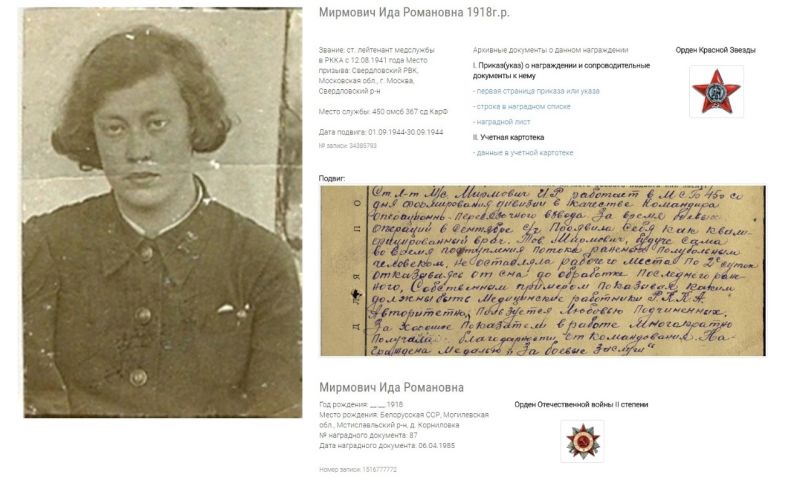 Мирмович Ида Романовна 1918г.р.
Звание: ст. лейтенант медслужбы
в РККА с 12.08.1941 года Место
призыва: Свердловский РВК,
Московская обл., г. Москва,
Свердловский р-н
Место службы: 450 омсб 367 сд КарФ
Дата подвига: 01.09.1944-30.09.1944
№ записи: 34385793
Архивные документы о данном награждении
I. Приказ(указ) о награждении и сопроводительные
документы к нему
- первая страница приказа или указа
- строка в наградном списке
- наградной лист
II. Учетная картотека
- данные в учетной картотеке
Орден Красной Звезды
Подвиг:
Ст. л-т м/с Мирмович И.Р. работает в МСБ 450 со
дня формирования дивизии в качестве Командира
операционно-перевязочного взвода. За время боевых
операций в сентябре с/г проявила себя как квали-
фицированный врач. Тов. Мирмович, будучи сама
во время поступления потока раненых полубольным
человеком, не оставляла рабочего места по 2е суток
отказываясь от сна до обработки последнего ране-
ного, Собственным примером показывая каким
должны быть медицинские работники Р.К.К.А.
Авторитетна, пользуется любовью подчиненных.
За хорошие показатели в работе многократно
получала благодарности от командования. На-
граждена медалью "За боевые заслуги"
Мирмович Ида Романовна
Год рождения: __.__.1918
Место рождения: Белорусская ССР, Могилевская
обл., Мстиславльский р-н, д. Корниловка
№ наградного документа: 87
Дата наградного документа: 06.04.1985
Номер записи: 1516777772
Орден Отечественной войны II степени